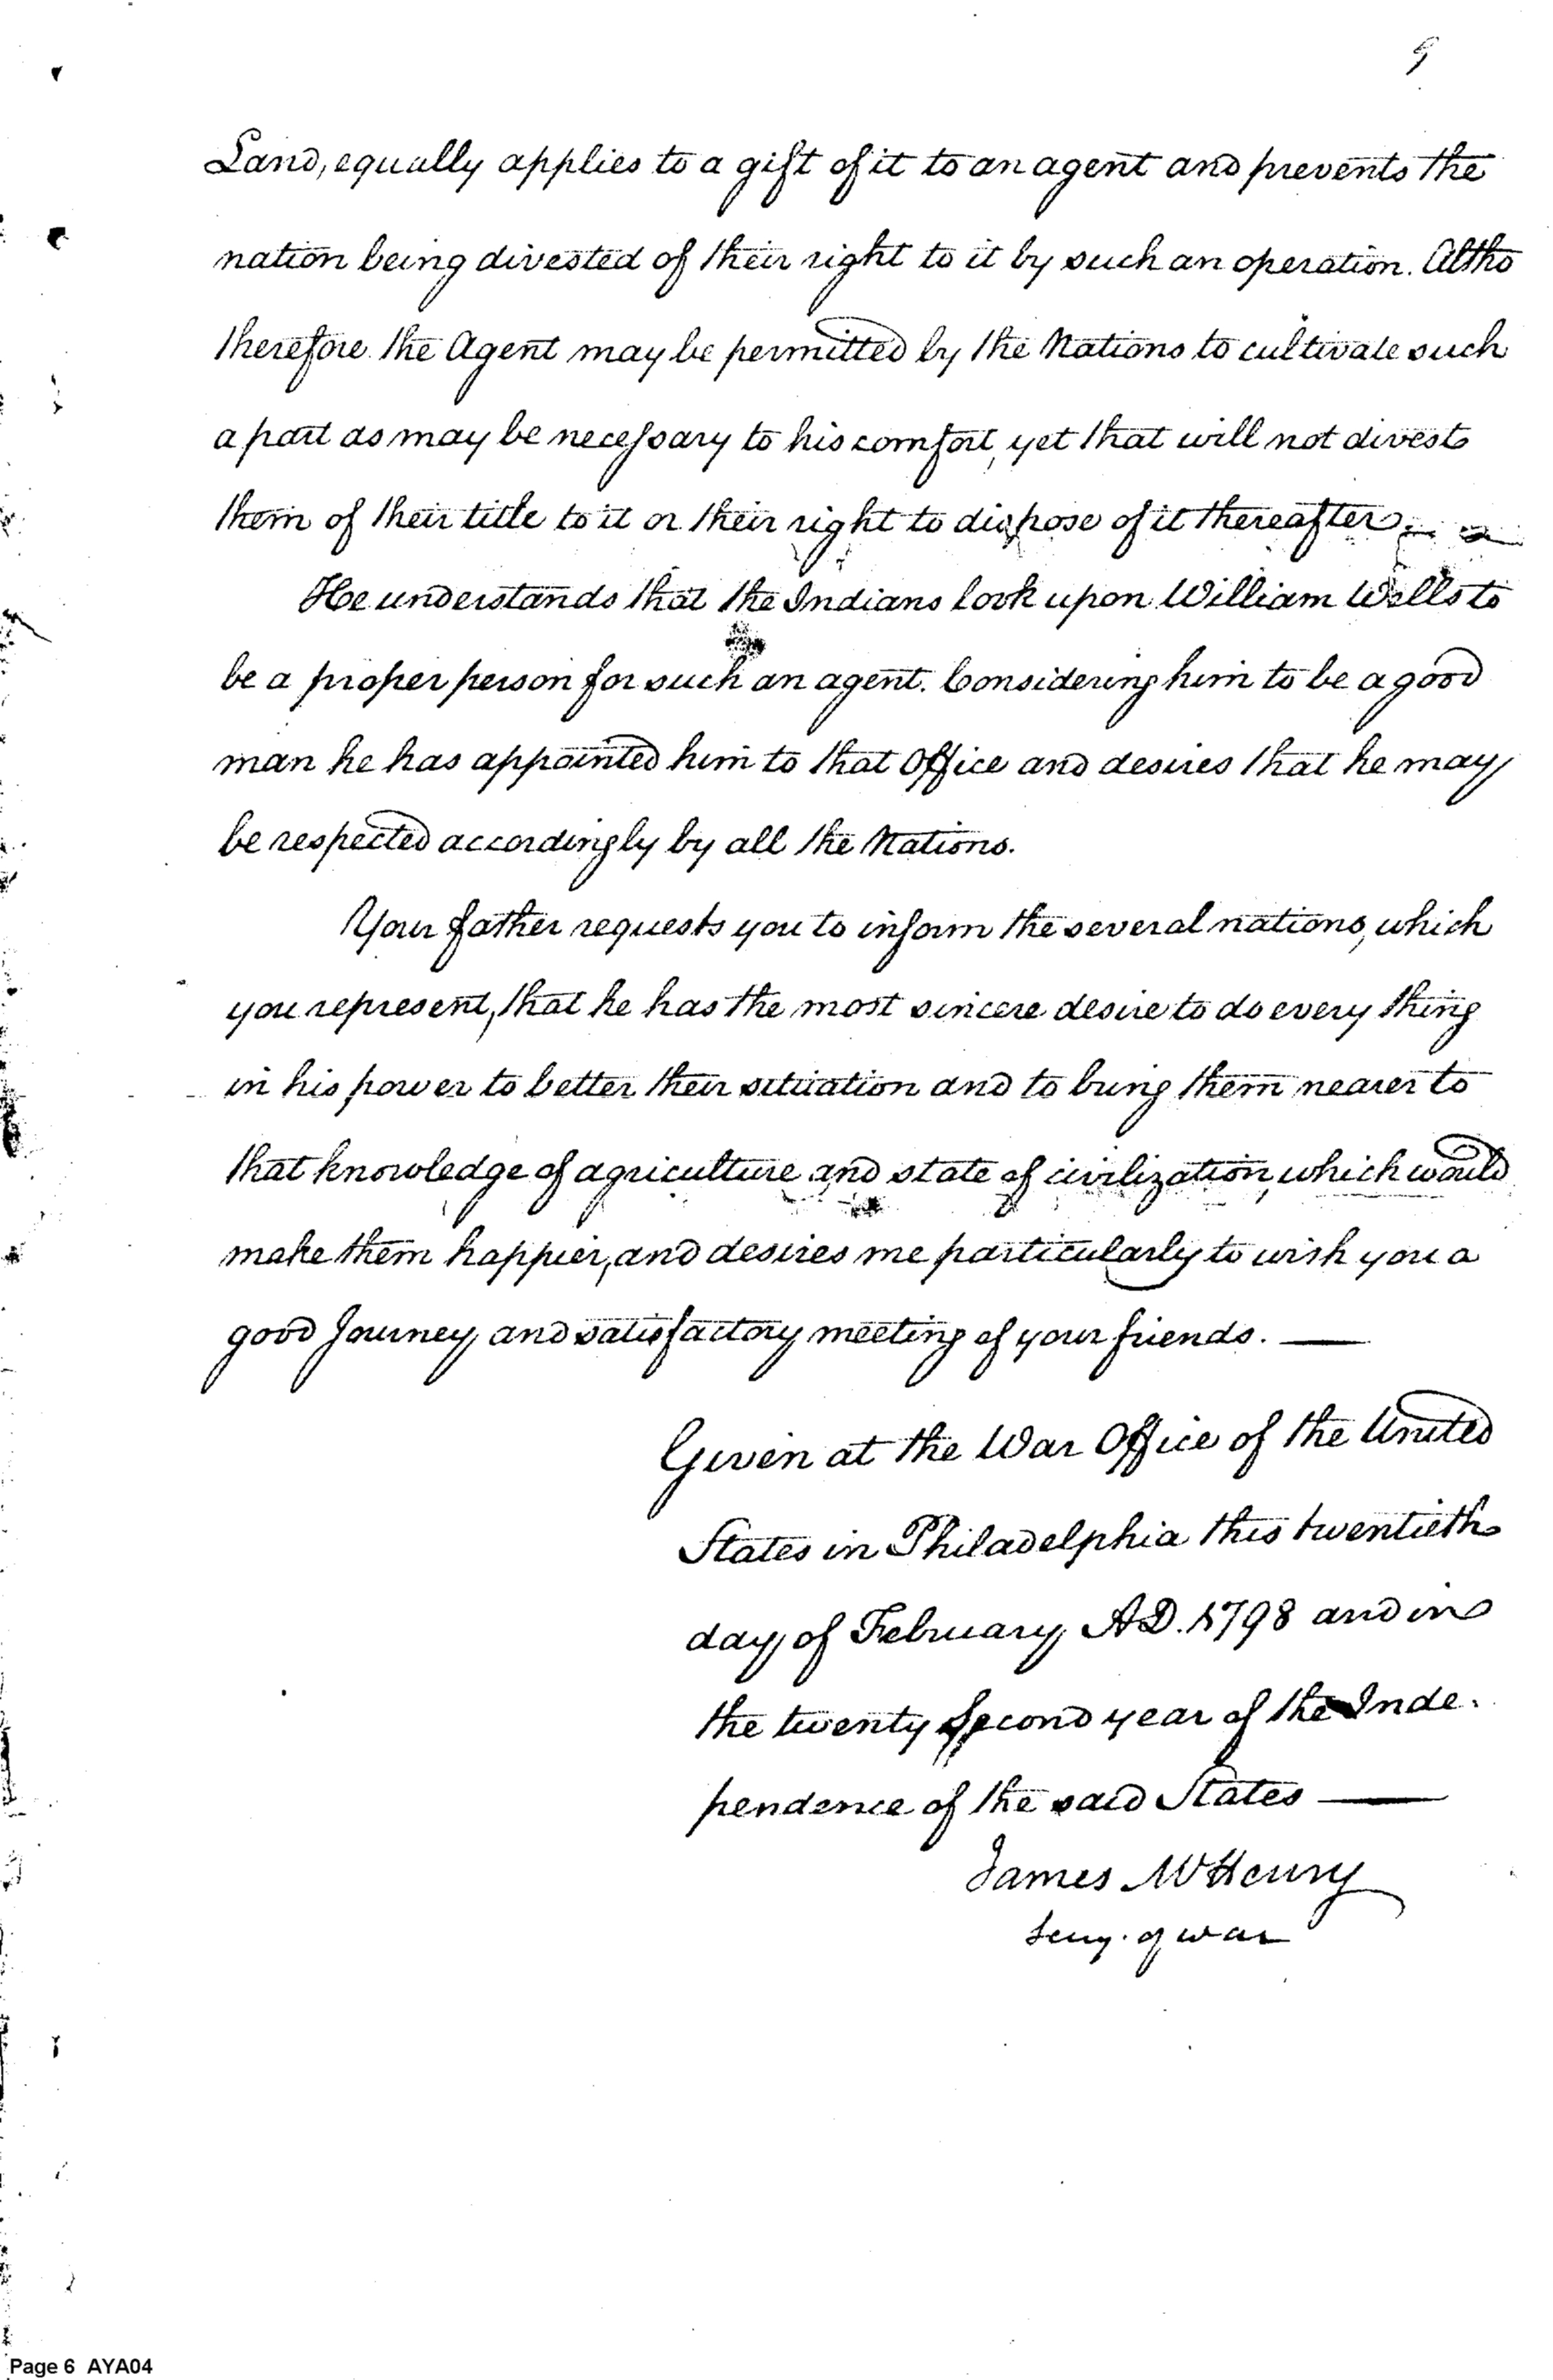 9
Land, equally applies to a gift of it to an agent and prevents the
nation being divested of their right to it by such an operation. Altho
therefore the Agent may be permitted by the Nations to cultivate such
a part as may be necessary to his comfort, yet that will not divest
them of their title to it or their right to dispose of it thereafter. —
He understands that the Indians look upon William Wells to
be a proper person for such an agent. Considering him to be a good
man he has appointed him to that Office and desires that he may
be respected accordingly by all the Nations.
Your father requests you to inform the several nations, which
you represent, that he has the most sincere desire to do every thing
in his power to better their situation and to bring them nearer to
that knowledge of agriculture and state of civilization, which would
make them happier, and desires me particularly to wish you a
good Journey and satisfactory meeting of your friends. —
Given at the War Office of the United
States in Philadelphia this twentieth
day of February A.D. 1798 and in
the twenty Second year of the Inde-
pendence of the said States —
James McHenry
Secry. of war
Page 6 AYA04